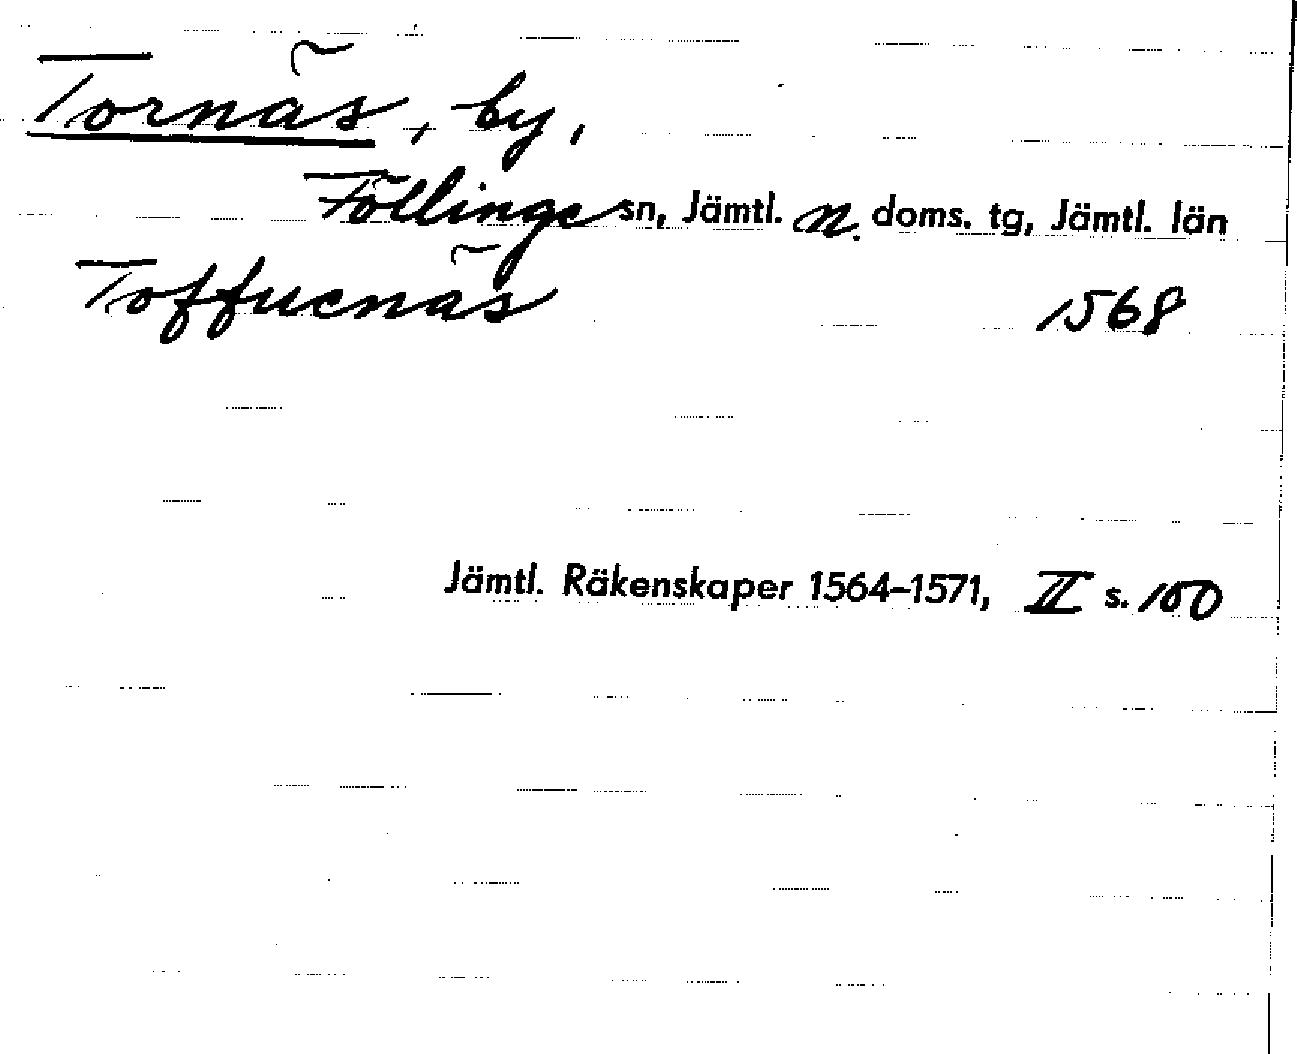 Tornäs, by,
Föllinge sn, Jämtl. n. doms. tg, Jämtl. län
Toffuenäs 1568
Jämtl. Räkenskaper 1564–1571, II s. 100